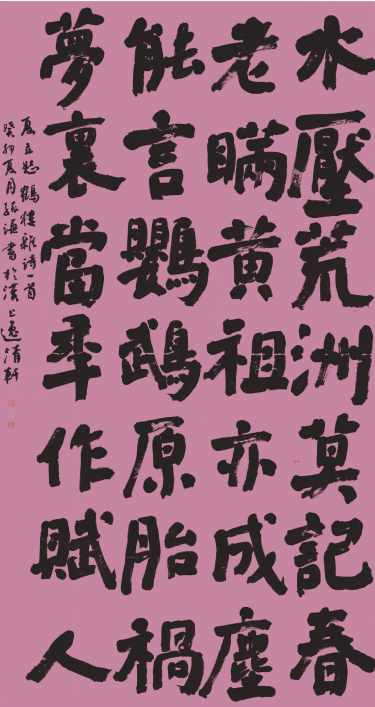 水壓荒洲莫記春
老瞞黃祖亦成塵
能言鸚鵡原胎禍
夢裏當年作賦人
夏立恕鶴樓雜詩一首
癸卯夏月書於漢上逸清軒